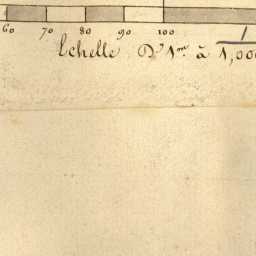 60 70 80 90 100
Echelle D'1m. à 1
1,000